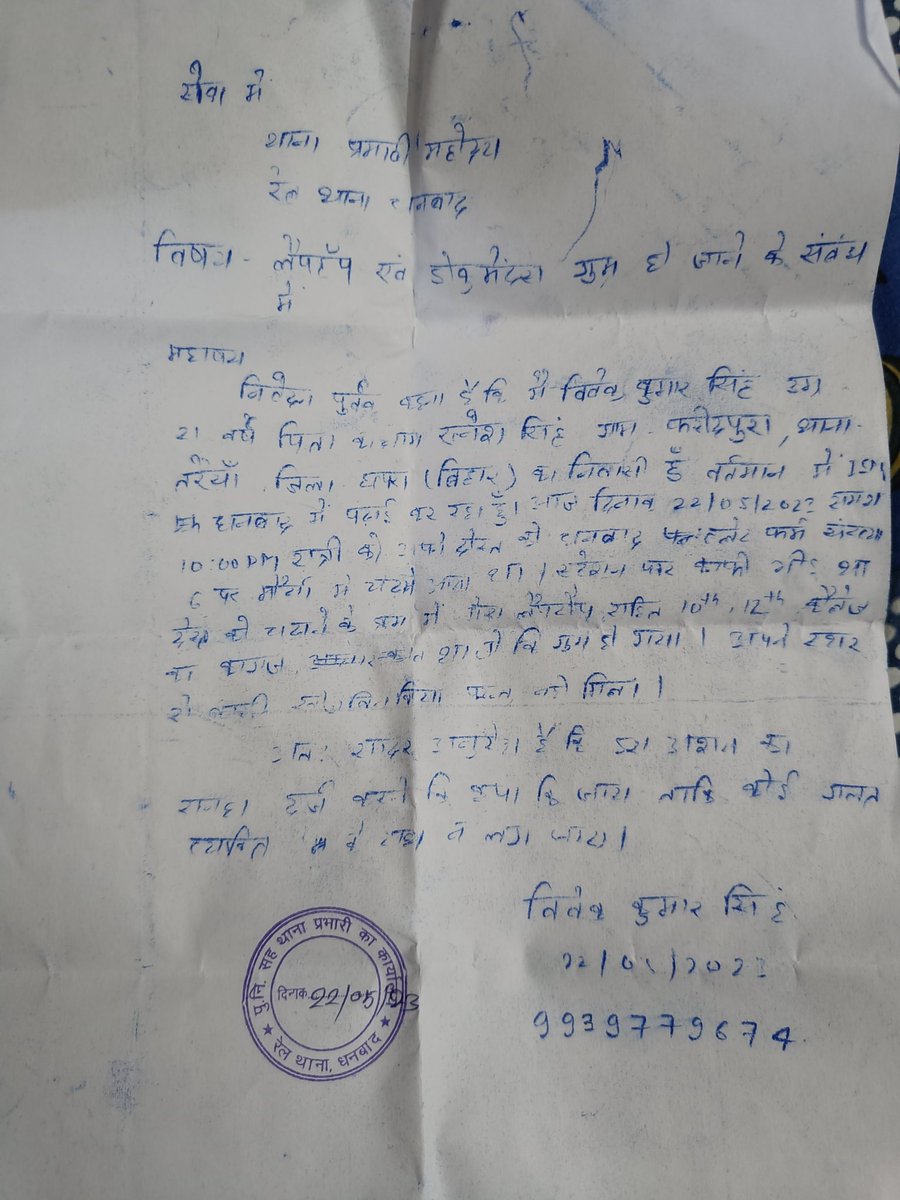 सेवा में
थाना प्रभारी महोदय
रेल थाना धनबाद
विषय - लैपटॉप एवं डोकुमेंट्स गुम हो जाने के संबंध
में
महाशय
निवेदन पूर्वक कहना है कि मैं विवेक कुमार सिंह उम्र
21 वर्ष पिता का नाम सिंह ग्राम - फरीदपुरा, थाना -
तरैयाँ जिला छपरा (बिहार) का निवासी हूँ वर्तमान में
धनबाद में पढाई कर रहा हूँ। आज दिनांक 22/05/2023 समय
10:00 PM रात्री को अपने दोस्त को धनबाद प्लेट फर्म संख्या
6 पर मौर्या में चढाने आया था। स्टेशन पर काफी भीड़ था
दोस्त को चढाने के क्रम में मेरा लैपटॉप सहित 10th, 12th कॉलेज
का कागज था जो कि गुम हो गया। अपने स्तर
से काफी खोजबिन किया परन्तु नही मिला।
अतः सादर अनुरोध है कि इस आशय का
सनहा दर्ज करने कि कृपा कि जाए ताकि कोई गलत
व्यक्ति के हाथ न लग जाए।
विवेक कुमार सिंह
22/05/2023
9939779674
पु.नि. सह थाना प्रभारी का कार्यालय
दिनांक 22/05/23
रेल थाना, धनबाद